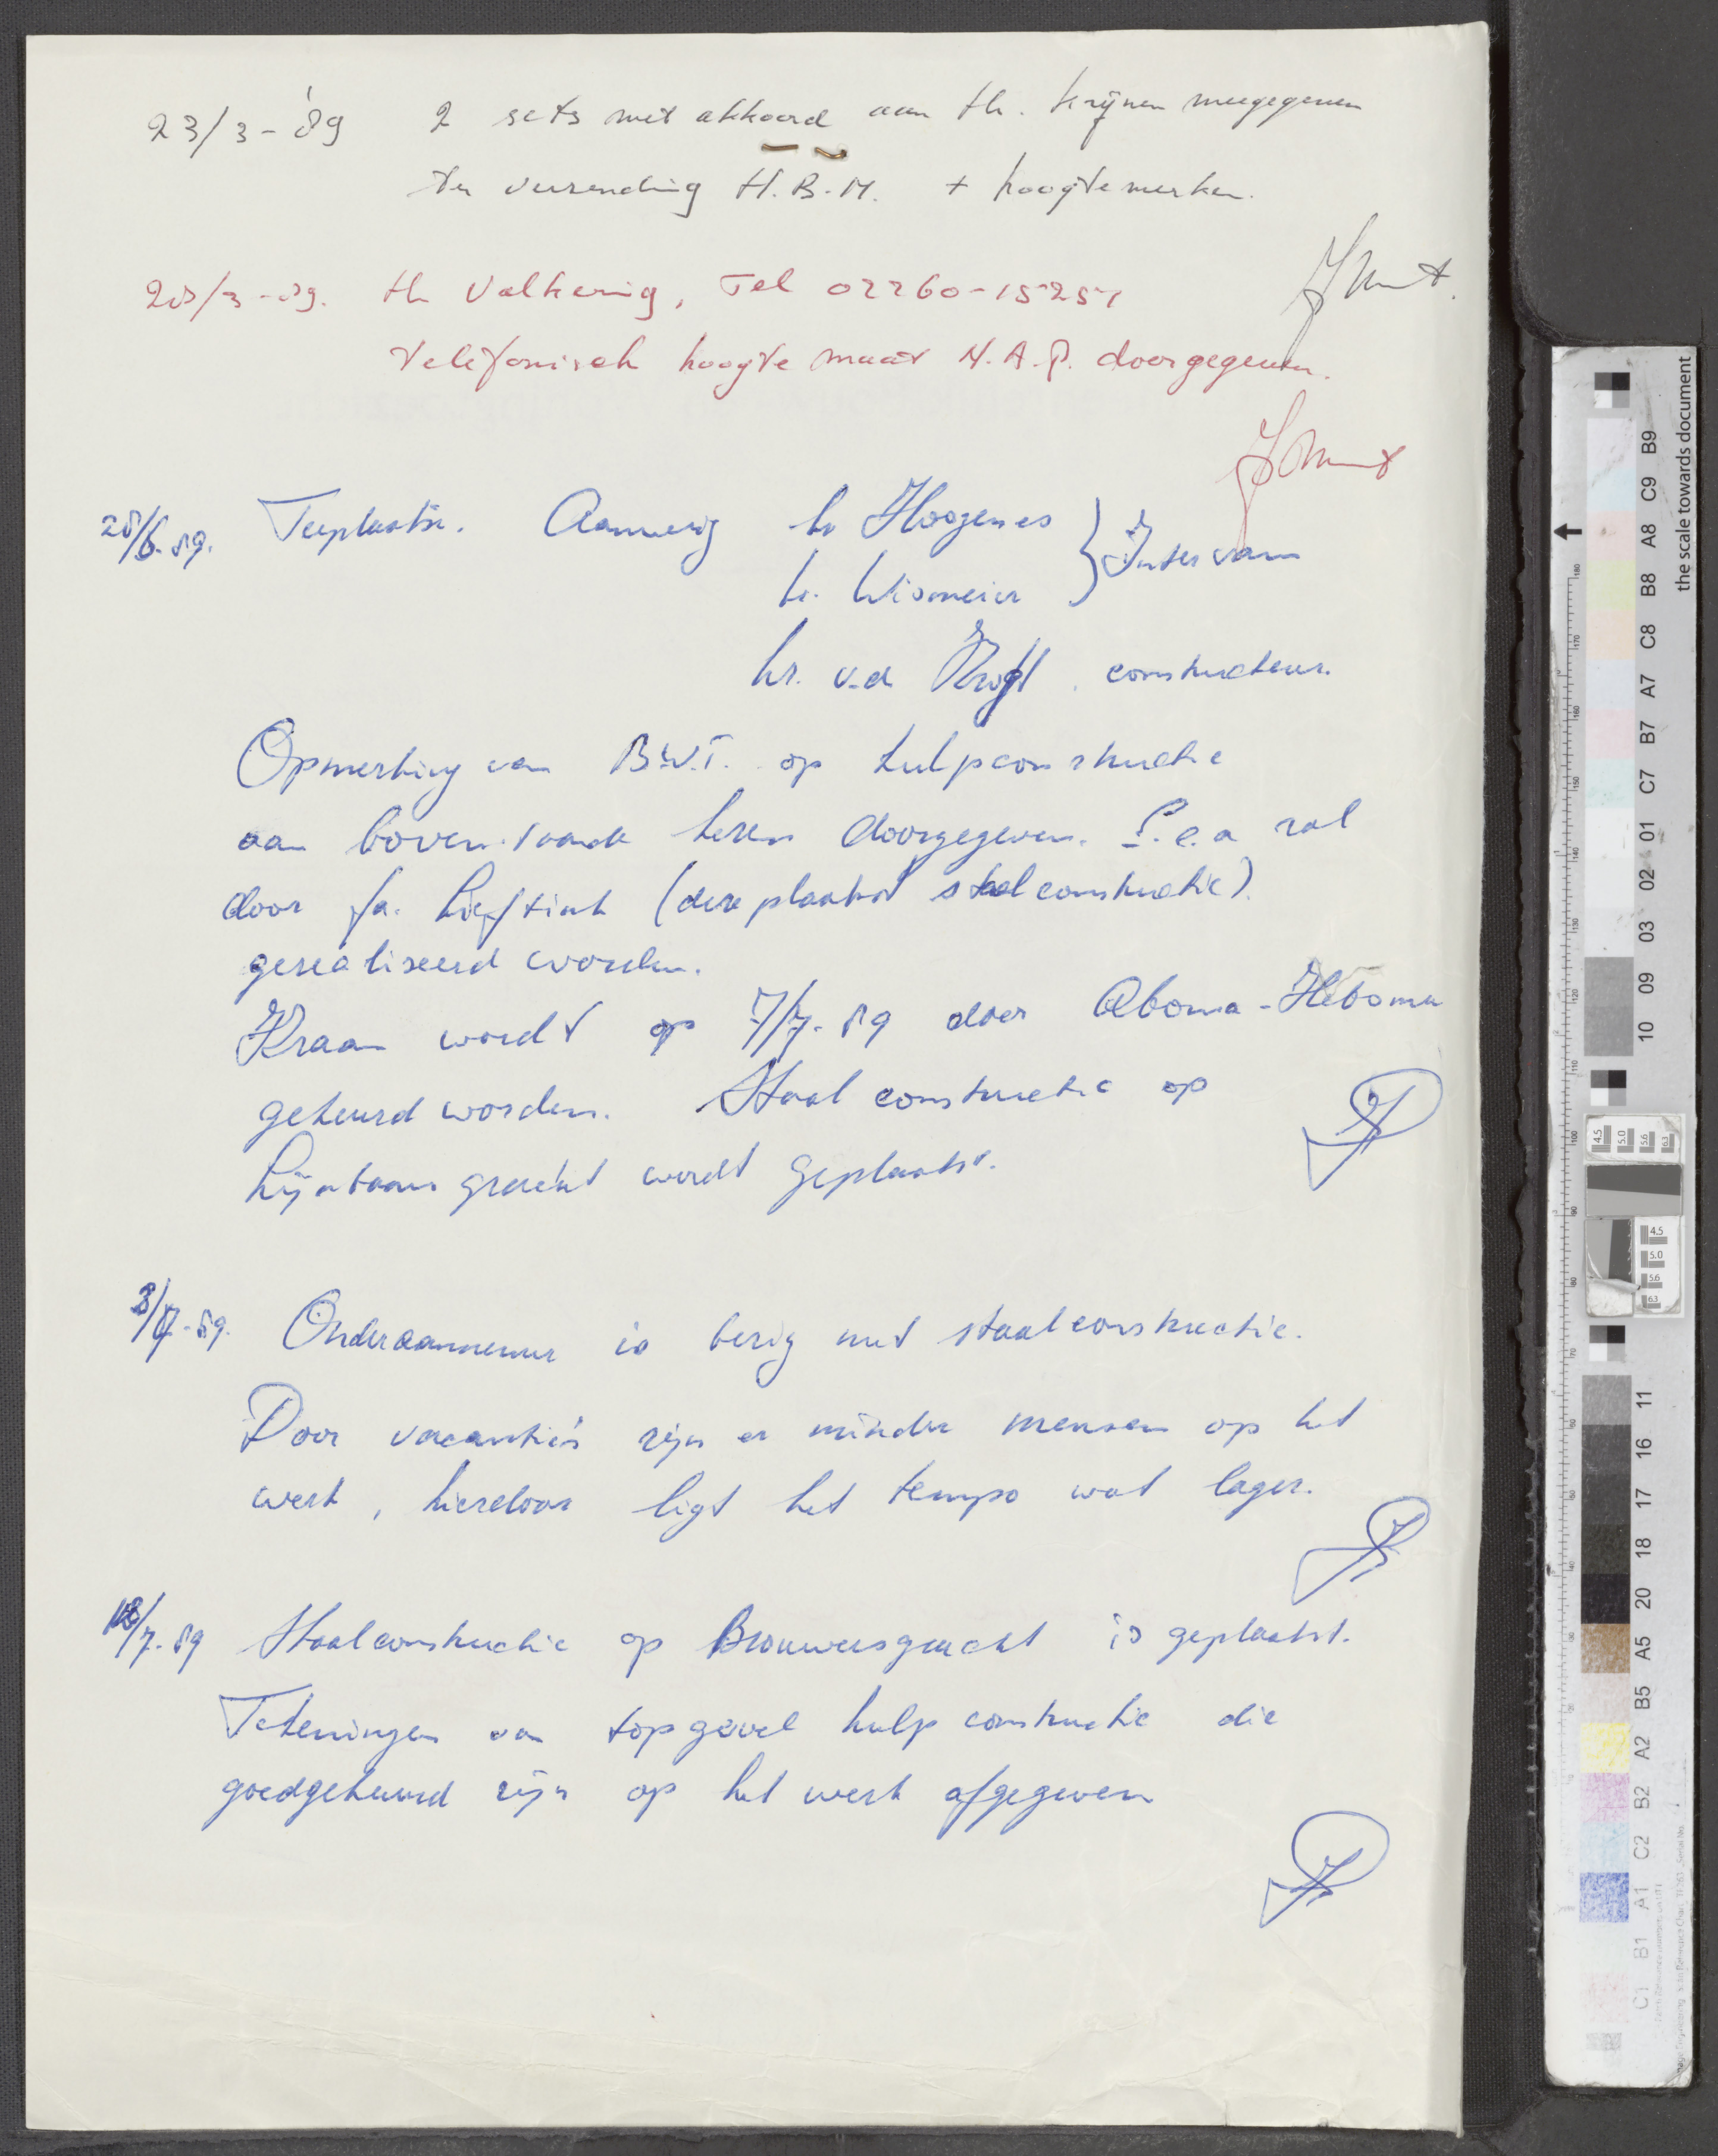 23/3-'89 2 sets met akkoord aan Hr. Krijnen meegegeven
ter verzending H.B.M. + hoogtemerken.
28/3-89. Hr Valkering, Tel 02260-15251
telefonisch hoogte maat N.A.P. doorgegeven.
28/6.89. Terplaatse. Aanwezig hr Hoogenes } Intervam
hr. Wismeier
hr. v.d. constructeur.
Opmerking van B.W.T. op hulpconstructie
aan bovenstaande heren doorgegeven. E.e.a zal
door fa. Lieftink (deze plaatst staalconstructie).
gerealiseerd worden.
Kraan wordt op 7/7-89 door Aboma-Keboma
gekeurd worden. Staalconstructie op
Lijnbaansgracht wordt geplaatst.
3/7-89. Onderaannemer is bezig met staalconstructie.
Door vacantie's zijn er minder mensen op het
werk, hierdoor ligt het tempo wat lager.
/7.89 Staalconstructie op Brouwersgracht is geplaatst.
Tekeningen van topgevel hulpconstructie die
goedgekeurd zijn op het werk afgegeven
the scale towards document
B9
C9
A8
B8
C8
A7
B7
C7
01
02
03
09
10
11
16
17
18
20
A5
B5
A2
B2
C2
A1
B1
C1